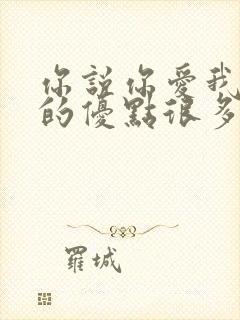 你說你愛我
的優點很多
羅城